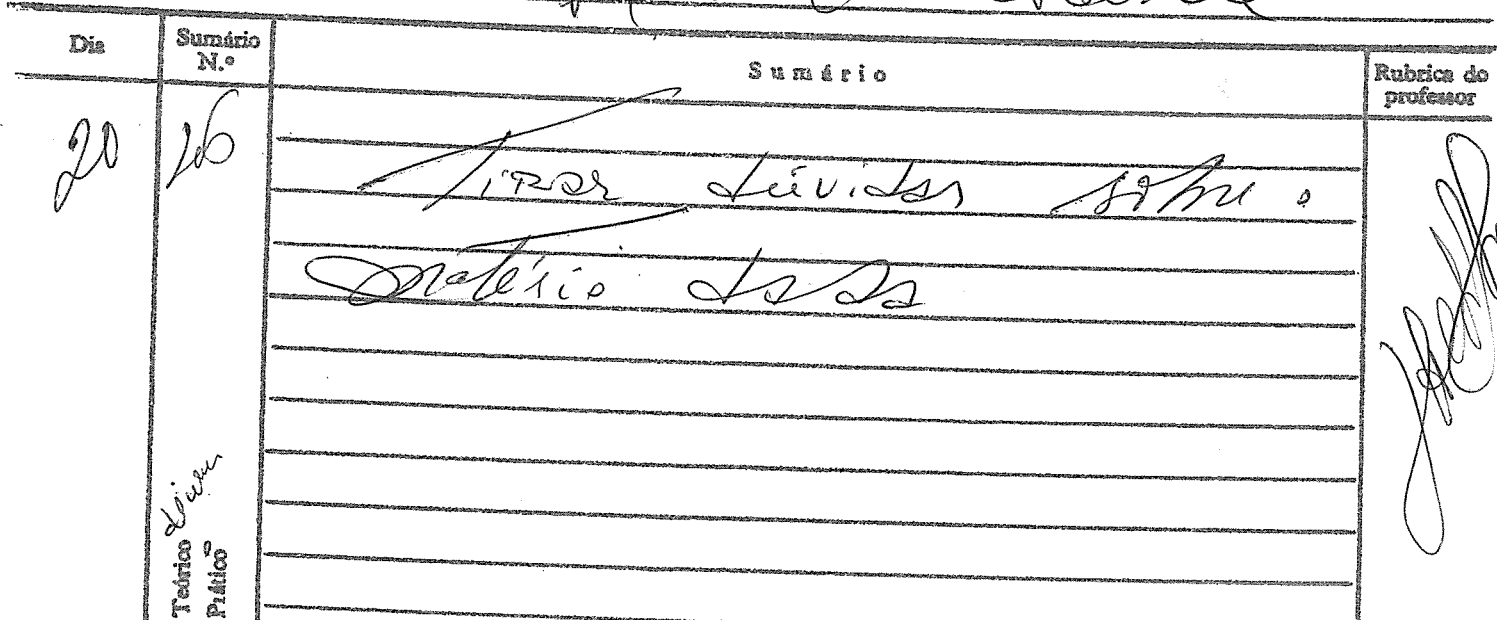 Dia
Sumário N.º
Sumário
Rubrica do professor
20
26
Tirar dúvidas sobre a
matéria dada
Teórico
Prático